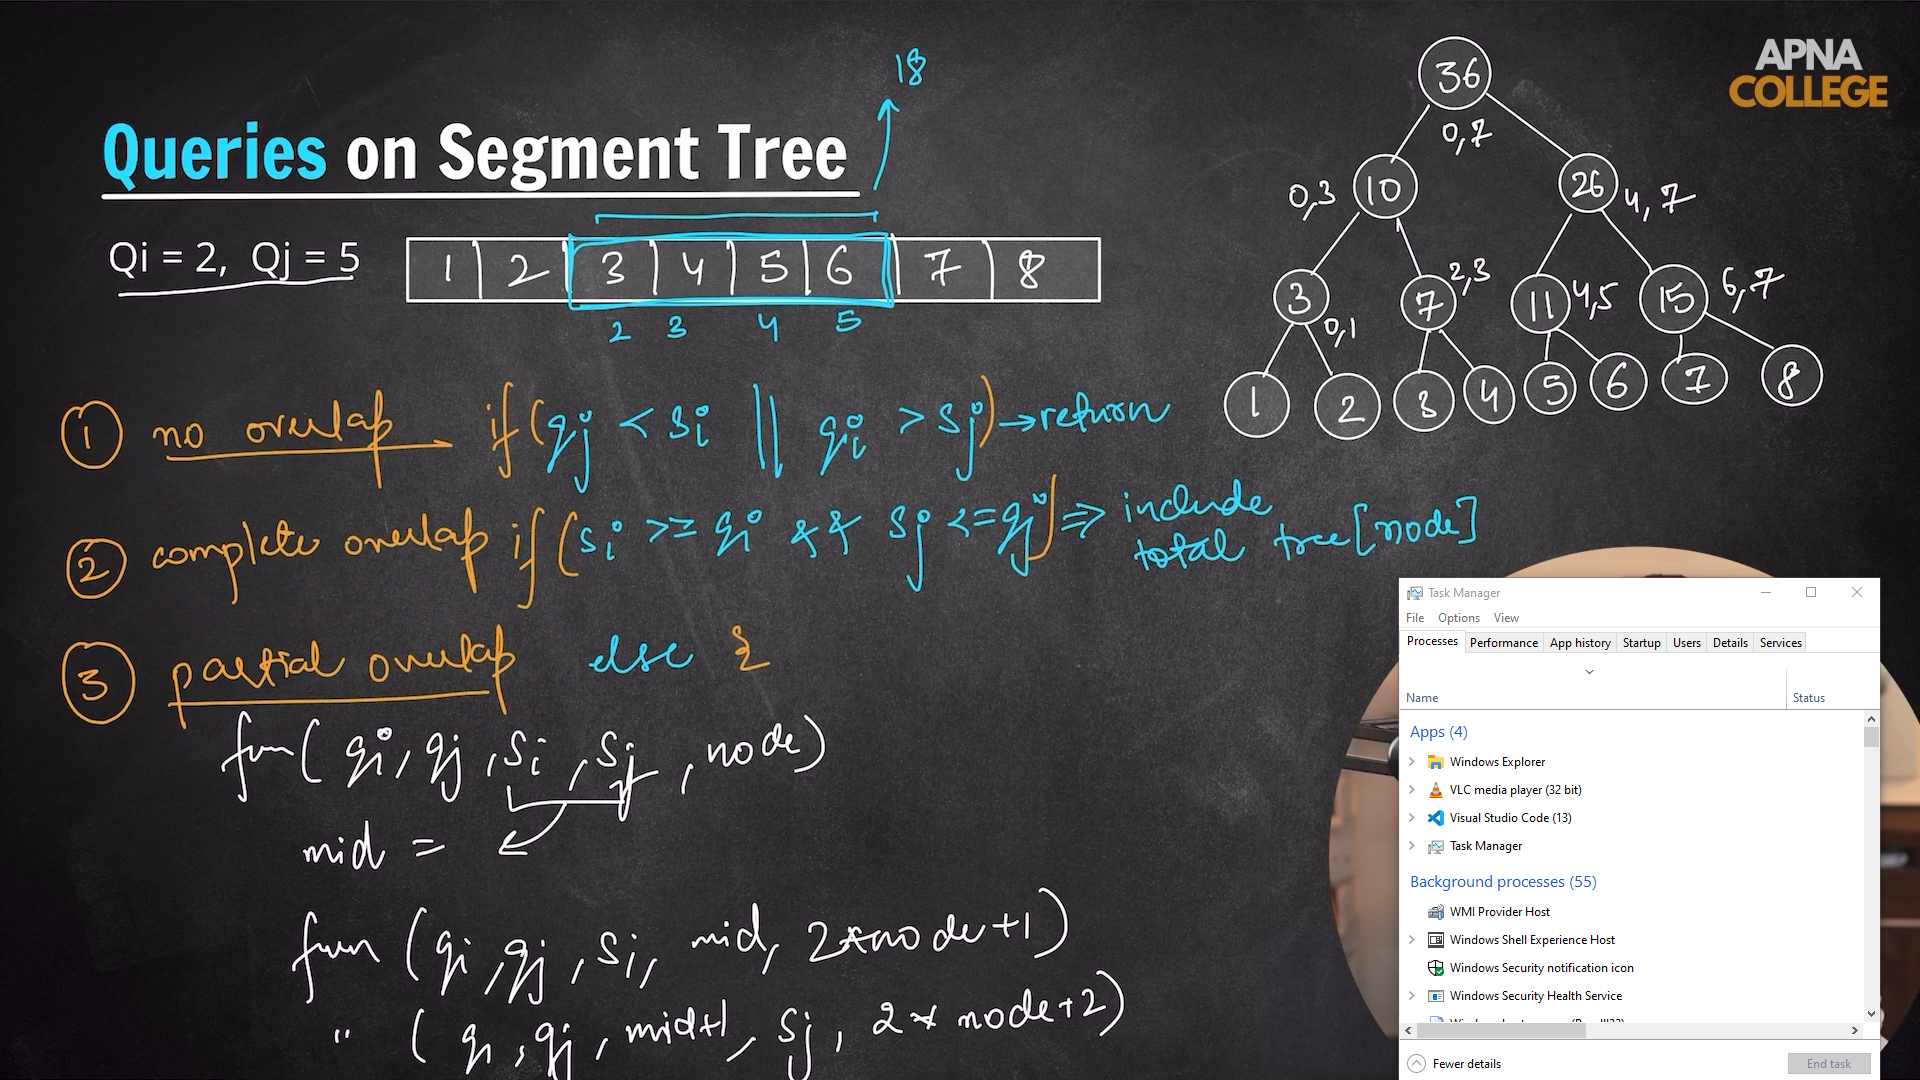 18
APNA
COLLEGE
Queries on Segment Tree
Qi = 2, Qj = 5
1 2 3 4 5 6 7 8
2 3 4 5
36
0,7
10
0,3
26
4,7
3
0,1
7
2,3
11
4,5
15
6,7
1 2 3 4 5 6 7 8
1 no overlap if (qj < si || qi > sj) → return
2 complete overlap if (si >= qi && sj <= qj) ⇒ include
total tree[node]
3 partial overlap else {
fun( qi, qj, si, sj, node)
mid =
fun (qi, qj, si, mid, 2*node+1)
" ( qi, qj, mid+1, sj, 2* node+2)
Task Manager
File Options View
Processes Performance App history Startup Users Details Services
Name Status
Apps (4)
Windows Explorer
VLC media player (32 bit)
Visual Studio Code (13)
Task Manager
Background processes (55)
WMI Provider Host
Windows Shell Experience Host
Windows Security notification icon
Windows Security Health Service
Fewer details End task